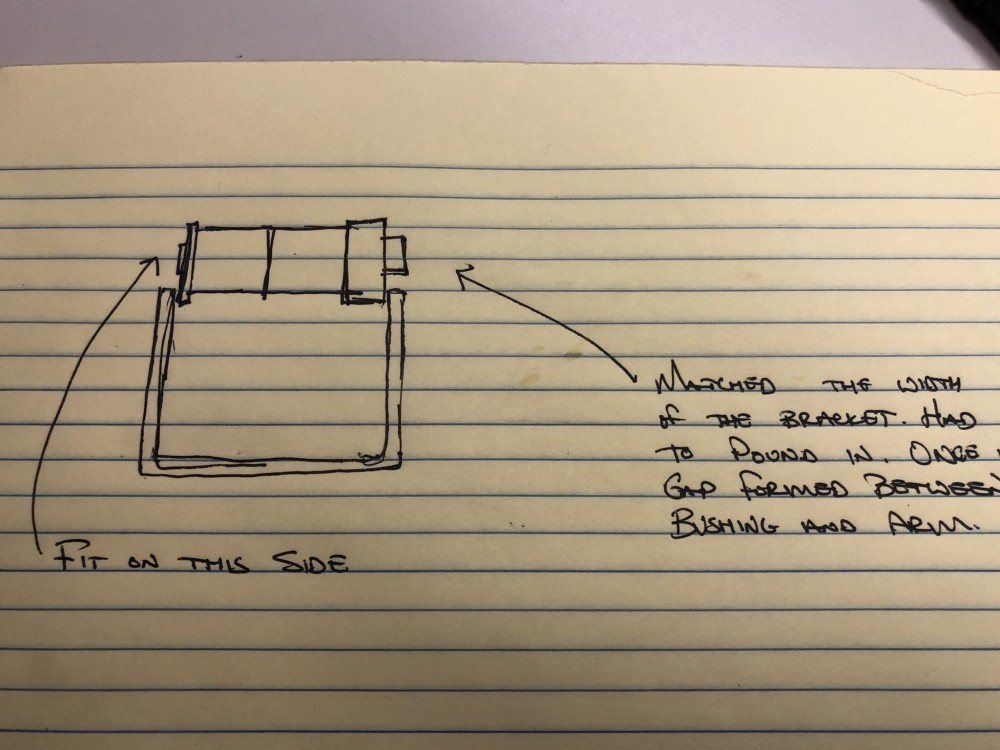 MATCHED THE WIDTH
OF THE BRACKET. HAD
TO POUND IN. ONCE
GAP FORMED BETWEEN
BUSHING AND ARM.
FIT ON THIS SIDE